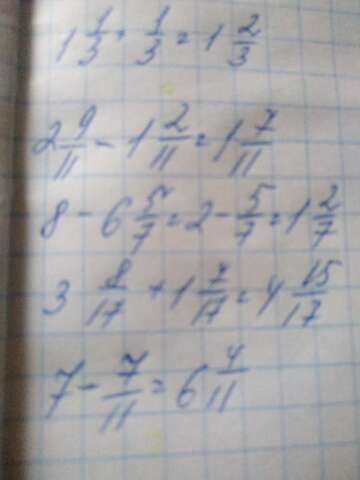 1 1/3 + 1/3 = 1 2/3
2 9/11 - 1 2/11 = 1 7/11
8 - 6 5/7 = 2 - 5/7 = 1 2/7
3 8/17 + 1 7/17 = 4 15/17
7 - 7/11 = 6 4/11